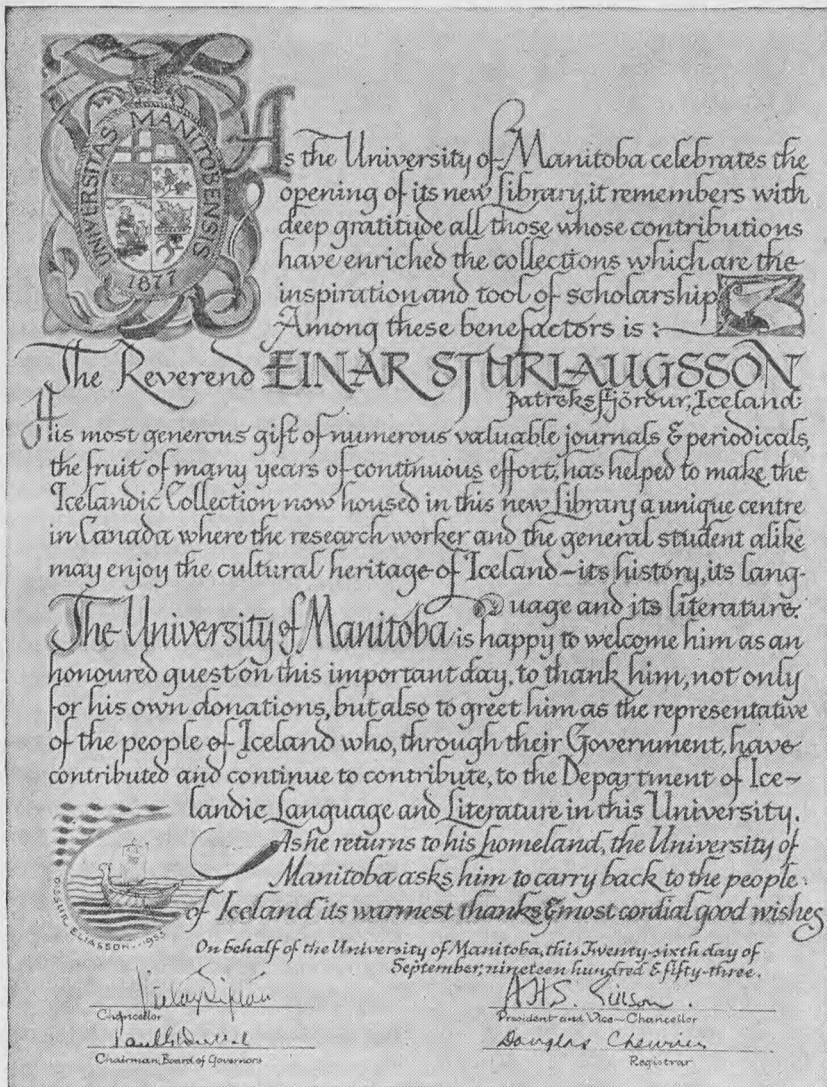 UNIVERSITAS MANITOBENSIS
1877
As the University of Manitoba celebrates the
opening of its new Library, it remembers with
deep gratitude all those whose contributions
have enriched the collections which are the
inspiration and tool of scholarship
Among these benefactors is:
The Reverend EINAR STURLAUGSSON
Patreksfjördur, Iceland.
His most generous gift of numerous valuable journals & periodicals,
the fruit of many years of continuous effort, has helped to make the
Icelandic Collection now housed in this new Library a unique centre
in Canada where the research worker and the general student alike
may enjoy the cultural heritage of Iceland - its history, its lang-
uage and its literature.
The University of Manitoba is happy to welcome him as an
honoured guest on this important day, to thank him, not only
for his own donations, but also to greet him as the representative
of the people of Iceland who, through their Government, have
contributed and continue to contribute, to the Department of Ice-
landic Language and Literature in this University.
As he returns to his homeland, the University of
Manitoba asks him to carry back to the people
of Iceland its warmest thanks & most cordial good wishes
ELIASSON - 1953
On behalf of the University of Manitoba, this Twenty-sixth day of
September, nineteen hundred & fifty-three.
Chancellor
A.H.S.
President and Vice-Chancellor
Chairman, Board of Governors
Douglas
Registrar